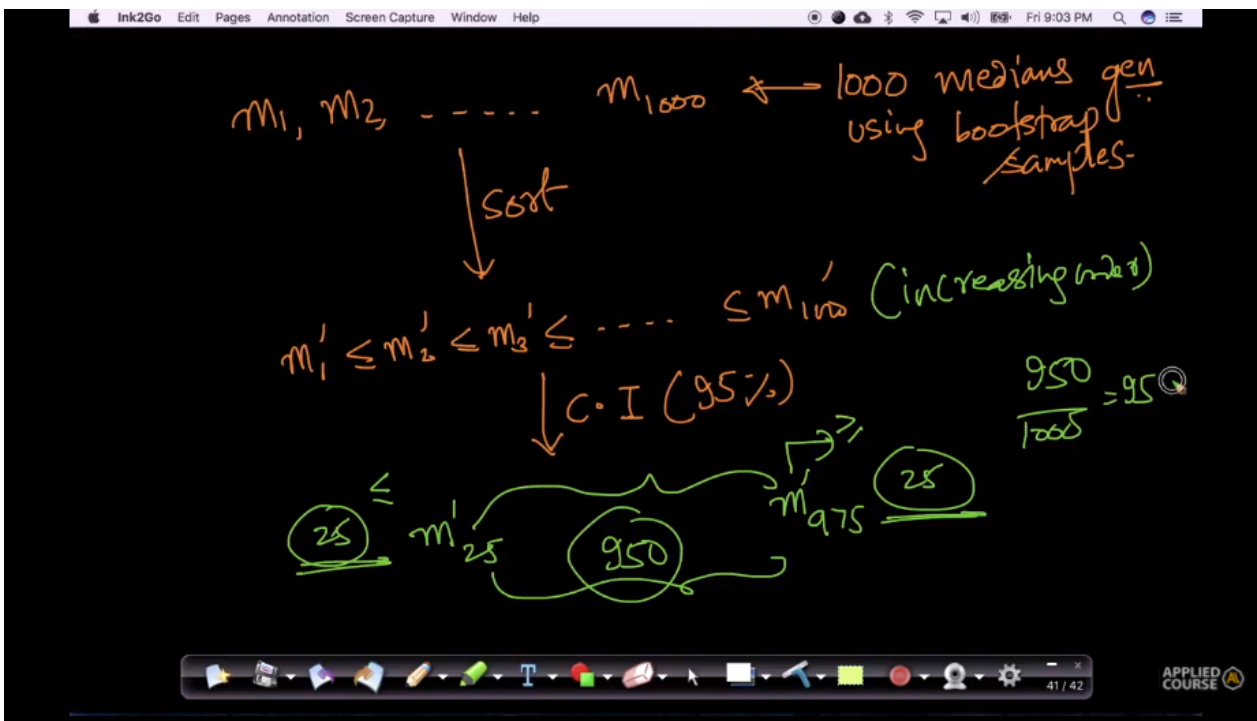 Ink2Go Edit Pages Annotation Screen Capture Window Help Fri 9:03 PM
m1, m2, ----- m1000 ← 1000 medians gen
using bootstrap
samples-
sort
m1' ≤ m2' ≤ m3' ≤ ---- ≤ m1000' (increasing order)
C.I (95%)
950/1000 = 95
25 ≤ m'25 950 m'975 ≥ 25
41 / 42
APPLIED
COURSE